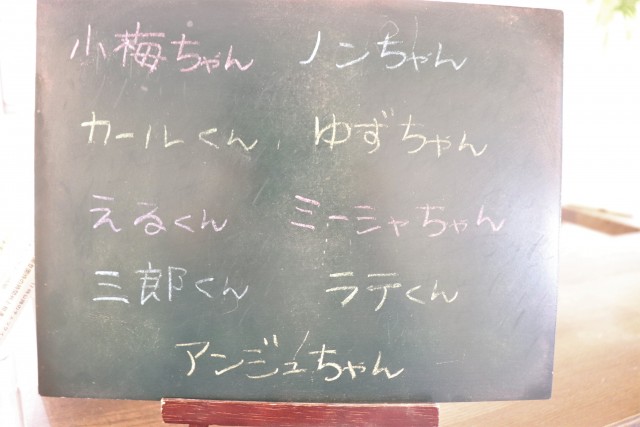 小梅ちゃん ノンちゃん
カールくん ゆずちゃん
えるくん ミーシャちゃん
三郎くん ラテくん
アンジュちゃん